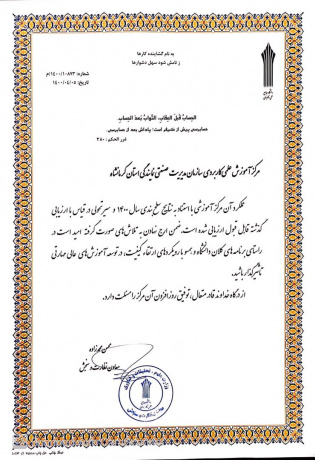 به نام گشاینده کارها
ز نامش شود سهل دشوارها
شماره: ۱۴۰۰/۱۰۸۷۳/م
تاریخ: ۱۴۰۰/۰۴/۰۵
الحساب قبل العقاب، الثواب بعد الحساب
حسابرسی پیش از کیفر است؛ پاداش بعد از حسابرسی.
غرر الحکم: ۳۸۰
مرکز آموزش علمی کاربردی سازمان مدیریت صنعتی نمایندگی استان کرمانشاه
عملکرد آن مرکز آموزشی با استناد به نتایج سطح بندی سال ۱۴۰۰ و سیر تحولی در قیاس با ارزیابی
گذشته قابل قبول ارزیابی شده است. ضمن ارج نهادن به تلاش‌های صورت گرفته امید است در
راستای برنامه‌های کلان دانشگاه و همسو با رویکردهای ارتقاء کیفیت، در توسعه آموزش‌های عالی مهارتی
تاثیرگذار باشید.
از درگاه خداوند قادر متعال، توفیق روز افزون آن مرکز را مسئلت دارد.
محسن محمدزاده
معاون نظارت و سنجش
وزارت علوم، تحقیقات و فناوری